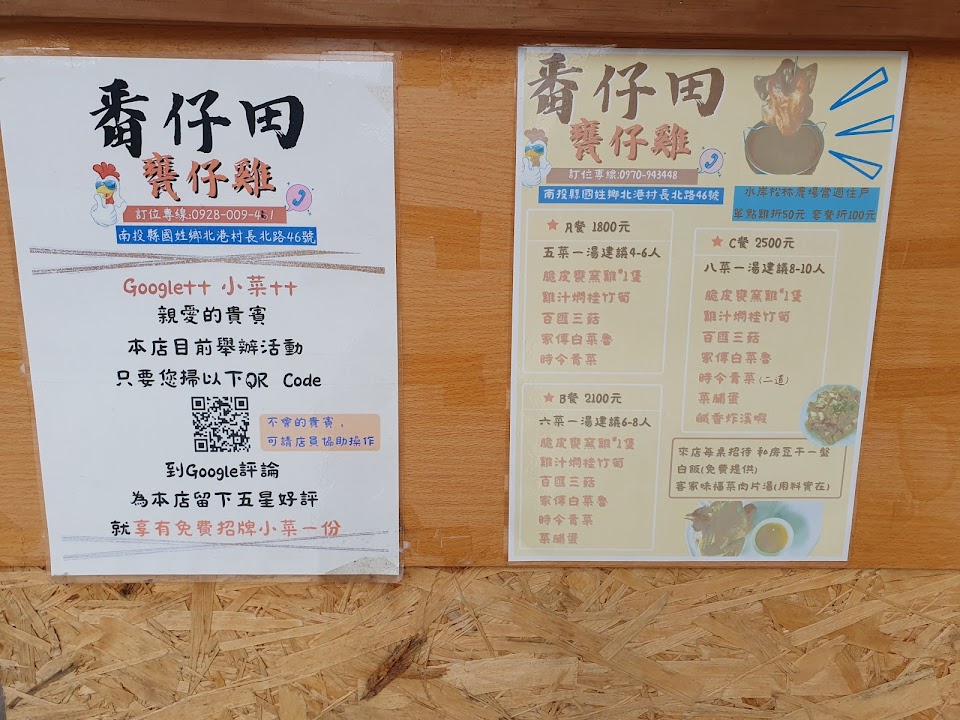 番仔田
甕仔雞
訂位專線:0928-009-451
南投縣國姓鄉北港村長北路46號
Google++ 小菜++
親愛的貴賓
本店目前舉辦活動
只要您掃以下QR Code
不會的貴賓，
可請店員協助操作
到Google評論
為本店留下五星好評
就享有免費招牌小菜一份
番仔田
甕仔雞
訂位專線:0970-943448
南投縣國姓鄉北港村長北路46號
水岸松林農場當週住戶
單點雞折50元 套餐折100元
A餐 1800元
五菜一湯建議4-6人
脆皮甕窯雞*1隻
雞汁燜桂竹筍
百匯三菇
家傳白菜魯
時令青菜
B餐 2100元
六菜一湯建議6-8人
脆皮甕窯雞*1隻
雞汁燜桂竹筍
百匯三菇
家傳白菜魯
時令青菜
菜脯蛋
C餐 2500元
八菜一湯建議8-10人
脆皮甕窯雞*1隻
雞汁燜桂竹筍
百匯三菇
家傳白菜魯
時令青菜(二道)
菜脯蛋
鹹香炸溪蝦
來店每桌招待 私房豆干一盤
白飯(免費提供)
客家味福菜肉片湯(用料實在)